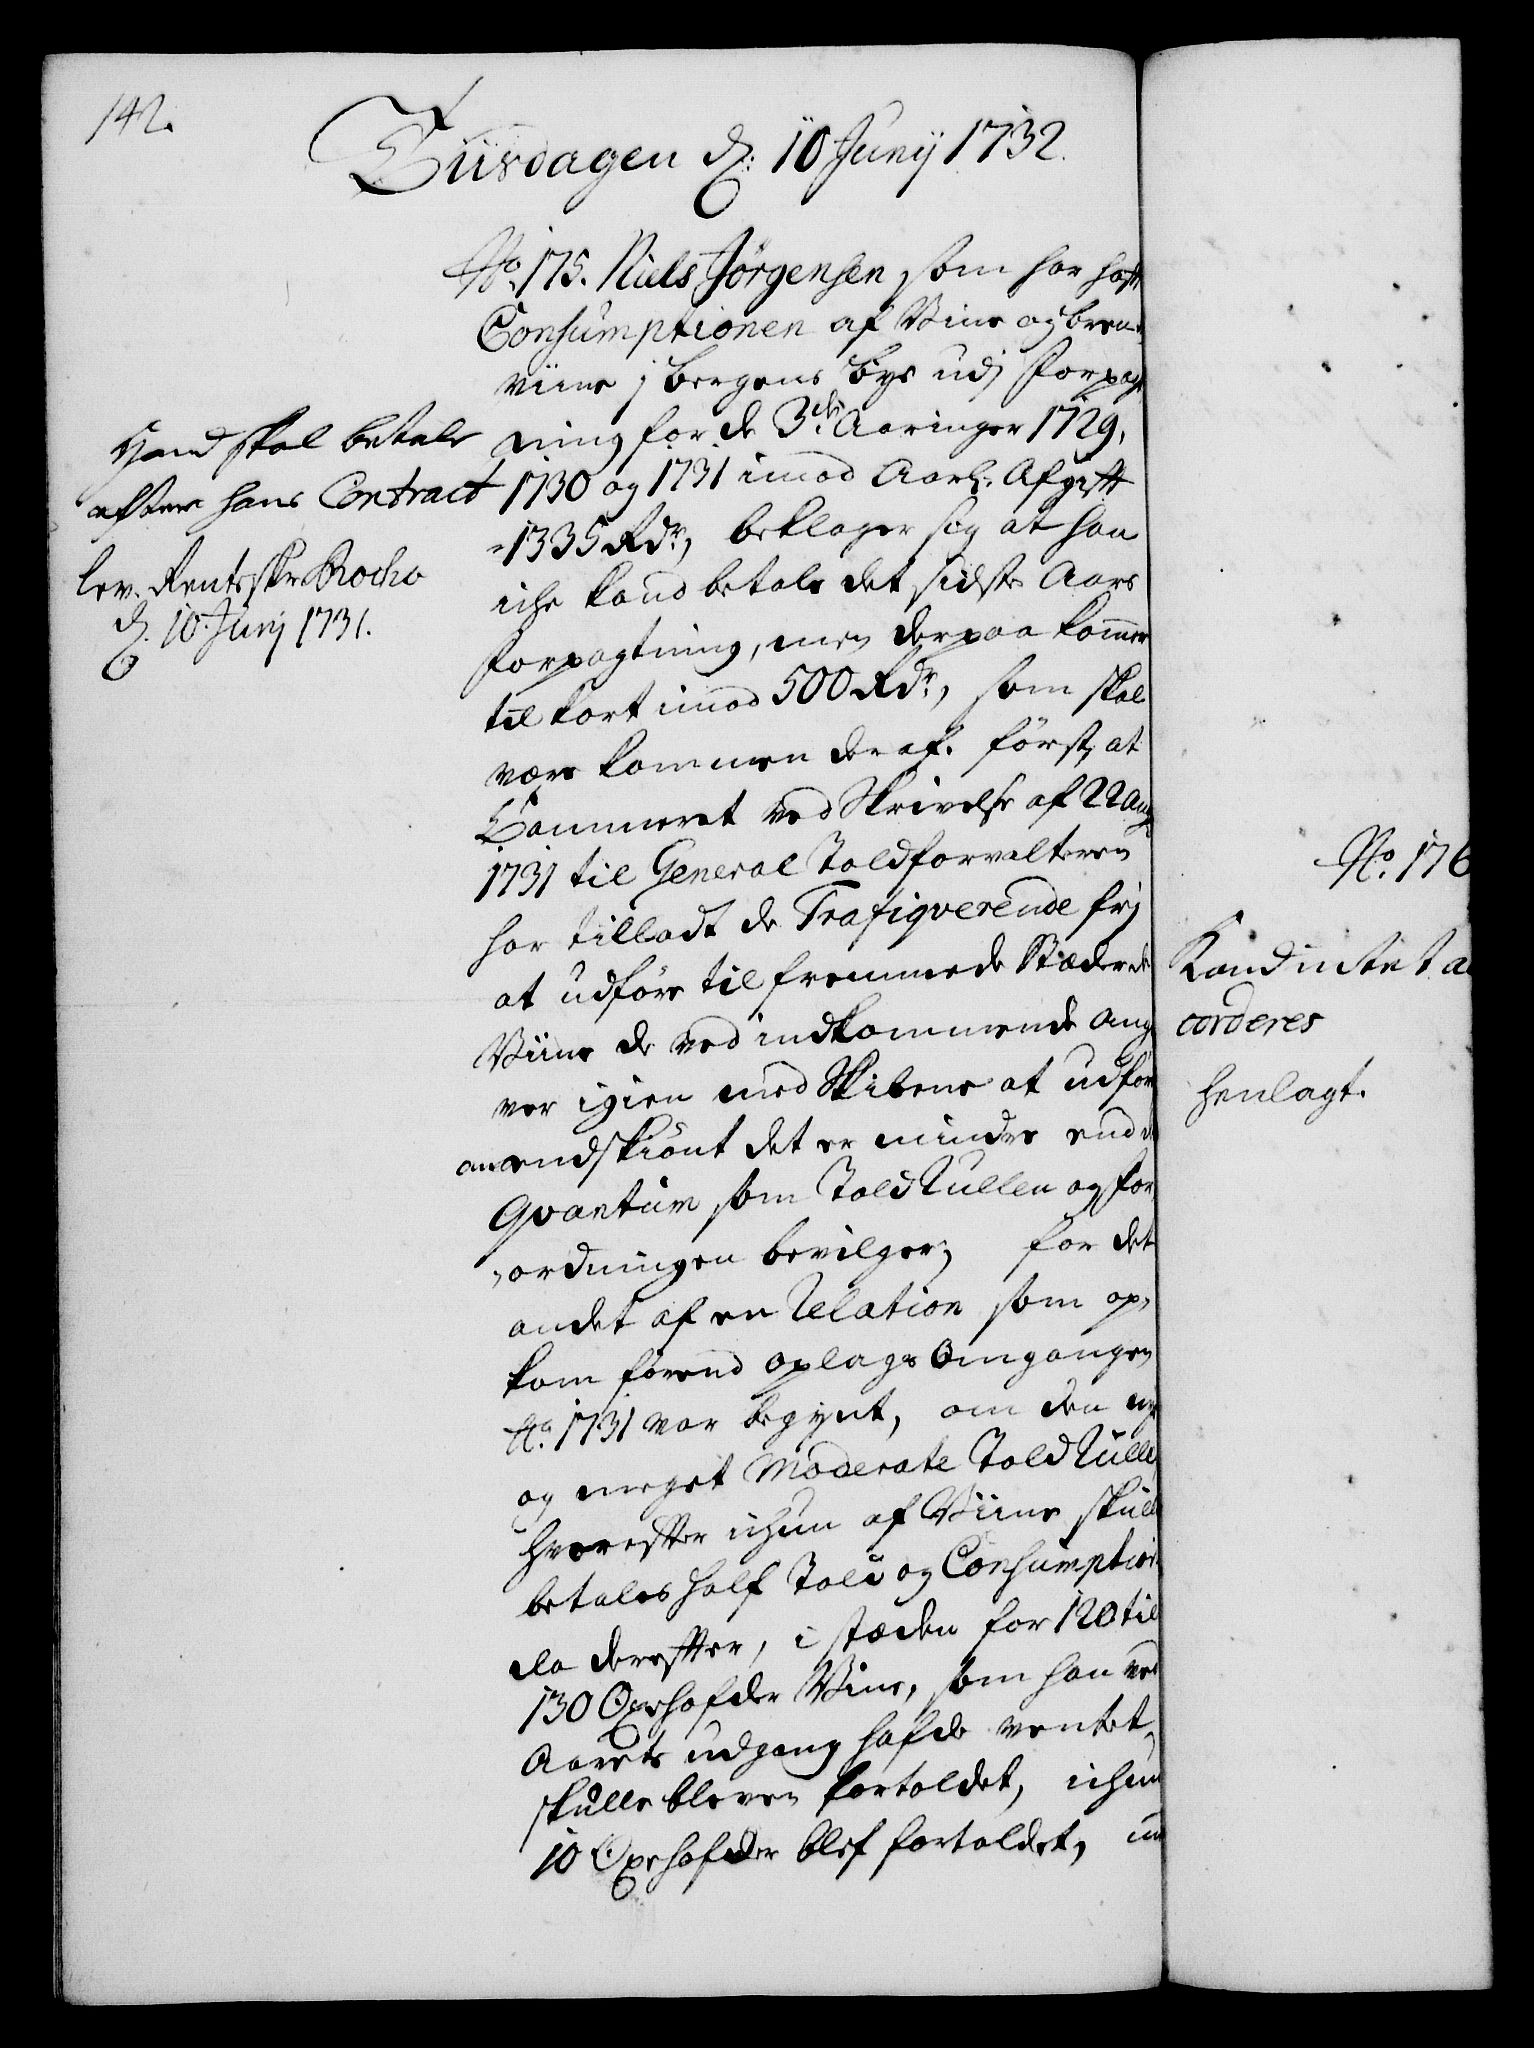 142.
Tiisdagen d. 10 Junij 1732.
No. 175. Niels Jörgensen som har haft
Consumptionen af Viine og bren-
viine j Bergens bye udj Forpagt
ning for de 3de Aaringer 1729,
1730 og 1731 imod Aarl. Afgift
1335 Rdr, beklager sig at han
iche kand betale det sidste Aars
Forpagtning, men derpaa kommer
til kort imod 500 Rdr, som skal
være kommen deraf. først, at
Cammeret ved Skrivelse af 22 Aug
1731 til General Toldforvalteren
har tilladt de Trafiqverende frj
at udføre til fremmede Stæder de
Viine de ved indkommende ang
ver igien med Skibene at udføre
andskiönt det er mindre end d
Qvantum som Told Rullen og for
ordningen bevilger, for det
andet af en Relation som op-
kom førend oplags Omgangen
Ao. 1731 var begynt, om den nye
og meget Moderate Told Rulle
hvorefter ichun af Viine skulle
betales half Told og Consumption
da derefter, i stæden for 120 til
130 Oxehofder Viine, som han ved
Aarets udgang hafde ventet
skulle bleven fortoldet, ichun
10 Oxehofder blef fortoldet,
Hand skal betale
efter hans Contract
lev. Rentskr. Rocho
d. 10 Junij 1731.
No. 176
Kand intet ac
corderes
henlagt.